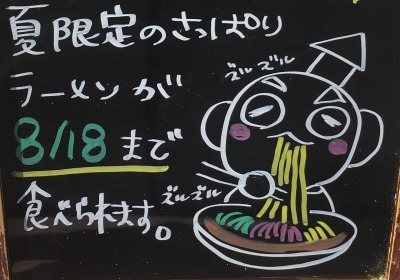 夏限定のさっぱり
ラーメンが
8/18まで
食べられます。
ズルズル
ズルズル